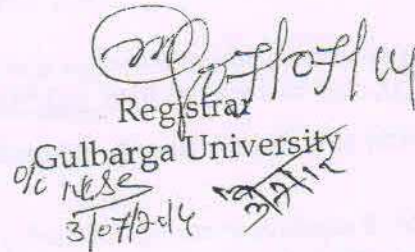 07/07/14
Registrar
Gulbarga University
o/c
3/07/2014